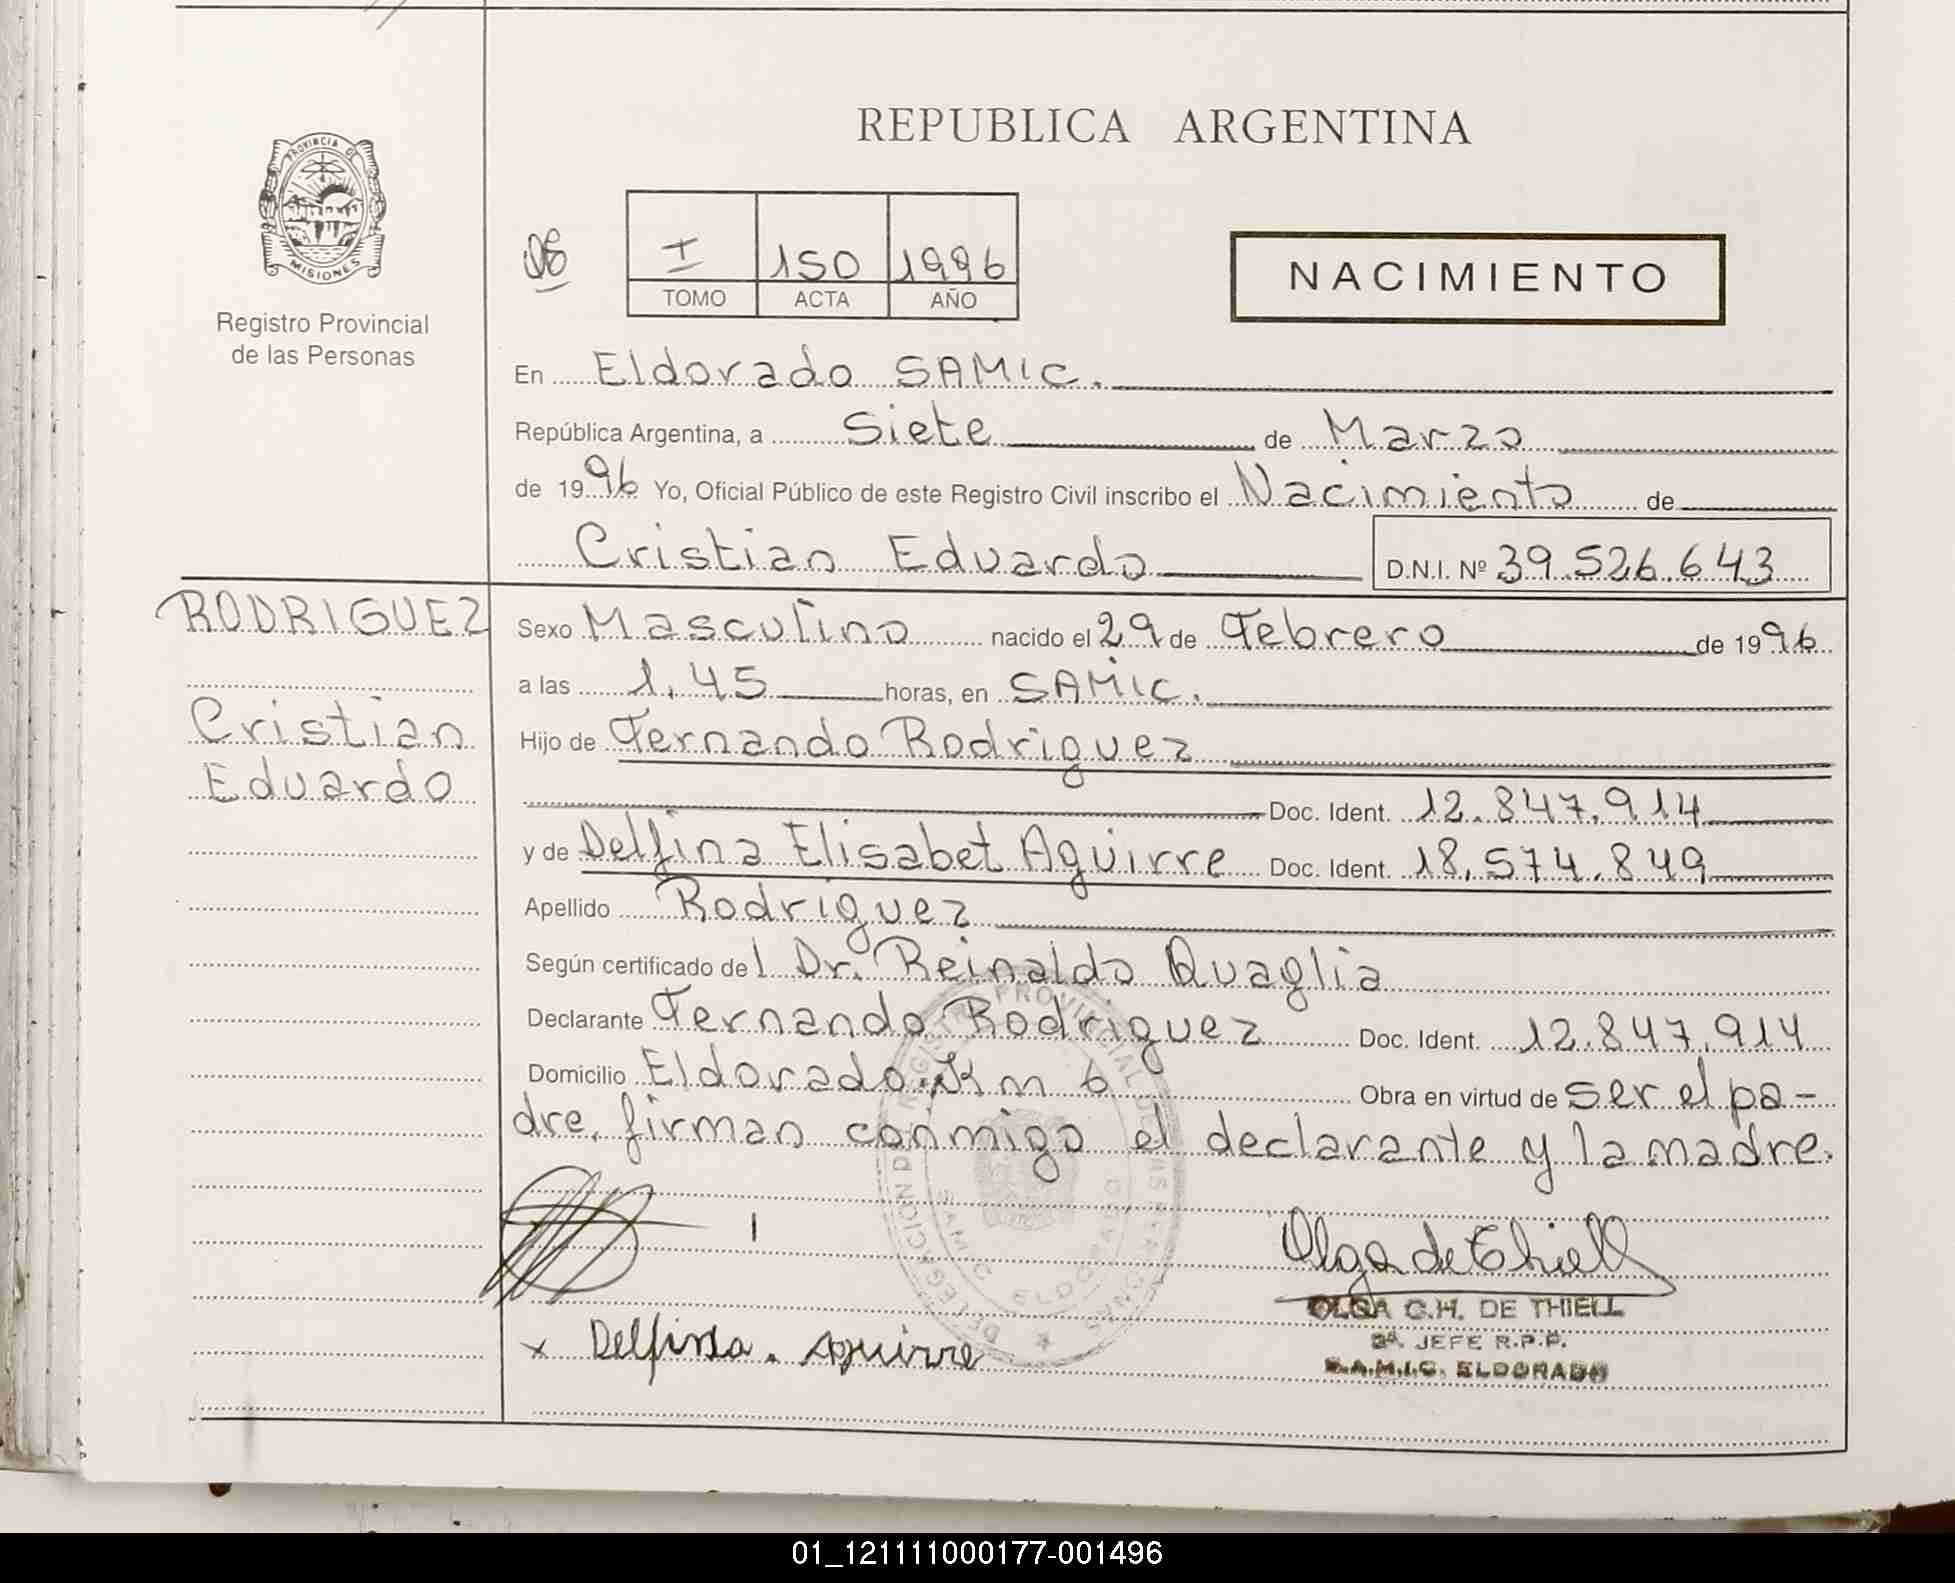 REPUBLICA ARGENTINA
PROVINCIA DE
MISIONES
Registro Provincial
de las Personas
I 150 1996
TOMO ACTA AÑO
NACIMIENTO
En Eldorado SAMIC.
República Argentina, a Siete de Marzo
de 1996 Yo, Oficial Público de este Registro Civil inscribo el Nacimiento de
Cristian Eduardo D.N.I. Nº 39.526.643
RODRIGUEZ
Cristian
Eduardo
Sexo Masculino nacido el 29 de Febrero de 1996
a las 1.45 horas, en SAMIC.
Hijo de Fernando Rodriguez
Doc. Ident. 12.847.914
y de Delfina Elisabet Aguirre Doc. Ident. 18.574.849
Apellido Rodriguez
Según certificado del Dr. Reinaldo Quaglia
Declarante Fernando Rodriguez Doc. Ident. 12.847.914
Domicilio Eldorado Km 6 Obra en virtud de ser el pa-
dre. firman conmigo el declarante y la madre.
Olga de Thiell
OLGA C.H. DE THIELL
2ª JEFE R.P.P.
S.A.M.I.C. ELDORADO
x Delfina. Aguirre
01_121111000177-001496